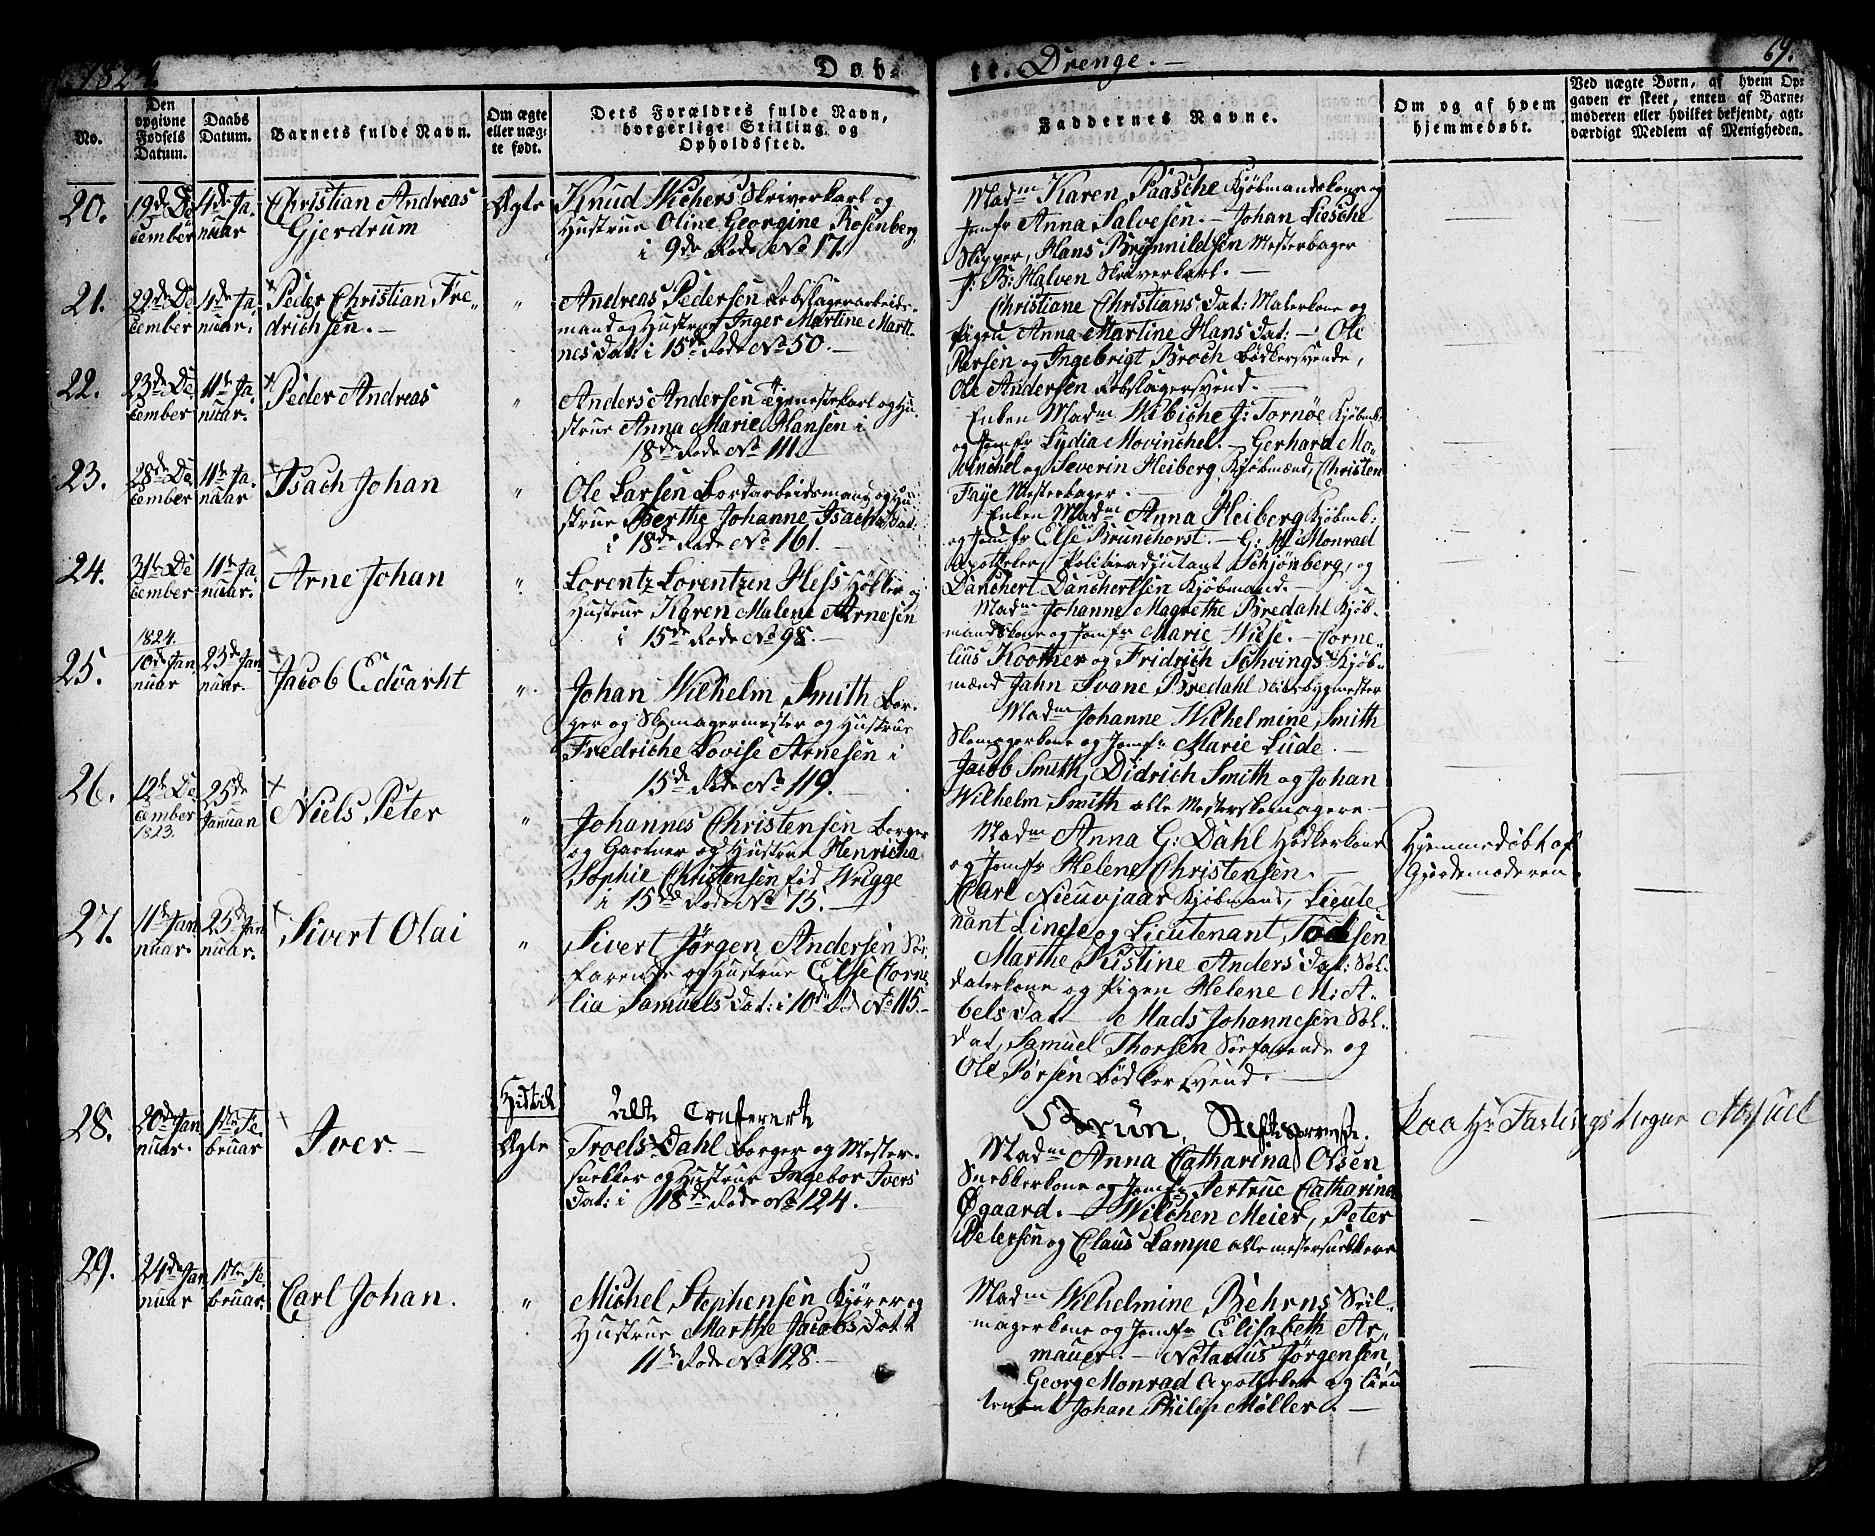 1824
Døb-
te Drenge.
69.
No.
Den opgivne Fødsels Datum.
Daabs Datum.
Barnets fulde Navn.
Om ægte eller uægte født.
Dets Forældres fulde Navn, borgerlige Stilling og Opholdssted.
Faddernes Navne.
Om og af hvem hjemmedøbt.
Ved uægte Børn, af hvem Opgaven er skeet, enten af Barnemoderen eller hvilket bekjendt, agtværdigt Medlem af Menigheden.
20.
19de De
cember
4de Ja
nuar
Christian Andreas
Gjerdrum
Ægte
Knud Wichers Skriverkarl og
Hustrue Oline Georgine Rosenberg
i 9de Rode No 17.
Madm Karen Paasche Kjøbmandskone og
Jomfr Anna Salvesen. - Johan Liesche
Skipper, Hans Brynnildsen Mesterbager
J: B: Halven Skriverkarl. -
21.
29de De
cember
4de Ja
nuar.
Peder Christian Fre,
drichsen. -
"
Andreas Pedersen Rebslagerarbeids-
mand og Hustrue Inger Martine Marti-
nes Dat: i 15de Rode No 50. -
Christiane Christians Dat: Malerkone og
Pigen Anna Martine Hans Dat: - Ole
Persen og Ingebrigt Broch Bødkersvende,
Ole Andersen Rebslagersvend. -
22.
23de De
cember
11te Ja
nuar.
Peder Andreas
"
Anders Andersen Tjenestekarl og Hu-
strue Anna Marie Hansen i
18de Rode No 111. -
Enken Madm Wibiche J: Tornøe Kjøbmk:
og Jomfr Lydia Mowinchel. - Gerhard Mo-
winchel og Severin Heiberg Kjøbmænd, Christen
Faye Mesterbager. -
23.
28de De
cember
11te Ja
nuar
Isach Johan
"
Ole Larsen Bordarbeidsmand og Hu
strue Berthe Johanne Isachs Dat:
i 18de Rode No 161. -
Enken Madm Anna Heiberg Kjøbmk:
og Jomfr Else Brunchorst. - G: H: Monrad
Apotheker, Politieadjutant Schjønberg, og
Danchert Danchertsen Kjøbmand. -
24.
31te De
cember
11te Ja
nuar.
Arne Johan
"
Lorentz Lorentzen Hess Høkker og
Hustrue Karen Malene Arnesen
i 15de Rode No 98. -
Madm Johanne Magrethe Bredahl Kjøb-
mandskone og Jomfr Marie Wiese. - Corne-
lius Koother og Fridrich Schvings Kjøb-
mænd Jahn Svane Bredahl Skibsbygmester
25.
1824.
10de Jan
nuar
25de Jan
nuar.
Jacob Edvardt
"
Johan Wilhelm Smith Bor-
ger og Skomagermester og Hustrue
Fredriche Lovise Arnesen i
15de Rode No 119. -
Madm Johanne Wilhelmine Smith
Skomagerkone og Jomfr Marie Lude. -
Jacob Smith, Didrich Smith og Johan
Wilhelm Smith alle Mesterskomagere -
26.
12te De
cember
1823.
25de
Januari
Niels Peter
"
Johannes Christensen Borger
og Gartner og Hustrue Henricha
Sophie Christensen fød Wrigge
i 15de Rode No 15. -
Madm Anna G: Dahl Høkkerkone
og Jomfr Helene Christensen. -
Carl Nieuvjaar Kjøbmand, Lieute-
nant Linde og Lieutenant Todsen
Hjemmedøbt af
Gjordemoderen.
27.
11te Jan
nuar.
25de Jan
nuar.
Sivert Olai
"
Sivert Jørgen Andersen Søe
farende og Hustrue Else Corne
lia Samuels Dat: i 10de Rd No 115. -
Marthe Kristine Anders Dat: Sol-
daterkone og Pigen Helene M: A-
bels Dat - Mads Johannesen Sol-
dat, Samuel Thorsen Søefarende og
Ole Persen Bødkersvend. -
28.
20de Jan
nuar.
1ste Fe
bruar
Iver. -
Ægte
Troels Dahl Borger og Mester-
snekker og Hustrue Ingebor Ivers
Dat: i 18de Rode No 124. -
Brun, Stiftsprovst.
Madm Anna Catharina Olsen
Snekkerkone og Jomfr Jertrue Catharina
Øgaard. - Wilchen Meier, Peter
Petersen og Claus Lampe alle mestersnekkere
29.
24de Jan
nuar
1ste Fe
bruar.
Carl Johan.
"
Michel Stephensen Kjører og
Hustrue Marthe Jacobs Datt
11te Rode No 128. -
Madm Wilhelmine Behrns Seil-
magerkone og Jomfr Elisabeth Ar-
mauer. - Notarius Jørgensen,
Georg Monrad Apotheker og Lieu
tenant Johan Philip Møller. -